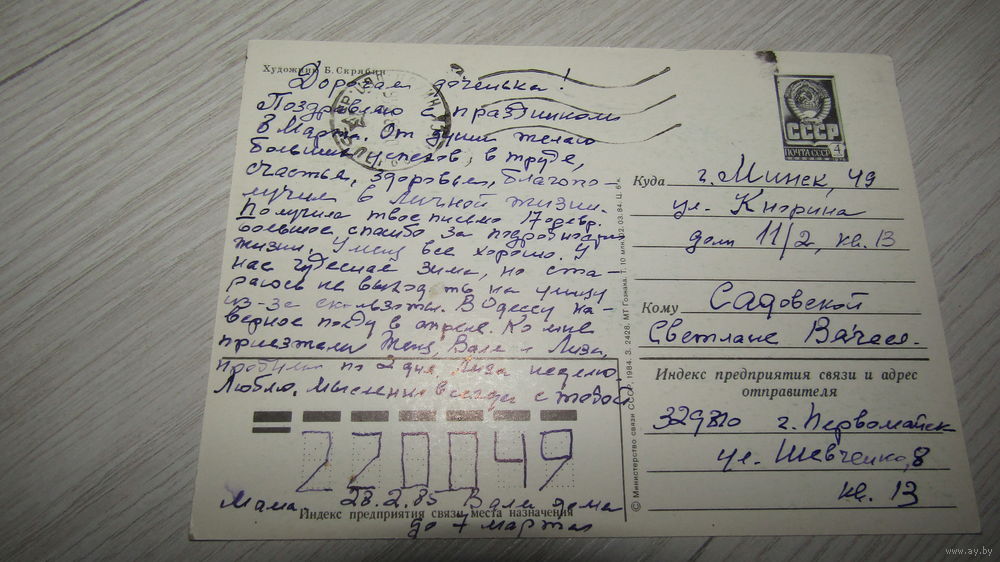 Художник Б. Скрябин
Дорогая доченька!
Поздравляю с праздником
8 Марта. От души желаю
больших успехов, в труде,
счастья, здоровья, благопо-
лучия в личной жизни.
Получила твое письмо 17 февр.
большое спасибо за подробности
жизни. У меня все хорошо. У
нас чудесная зима, но ста-
раюсь не выходить на улицу
из-за скользоты. В Одессу на-
верное поеду в апреле. Ко мне
приезжали Женя, Валя и Лиза,
пробыли по 2 дня, Лиза неделю.
Люблю. Мысленно всегда с тобой
Мама. 28.2.85 Валя дома
до 7 марта
220049
Индекс предприятия связи места назначения
© Министерство связи СССР, 1984. З. 2428. МТ Гознака. Т. 10 млн. 22.03.84. Ц. 6 к.
СССР
ПОЧТА СССР
4
Куда г. Минск, 49
ул. Кнорина
дом 11/2, кв. 13
Кому Садовской
Светлане Вячесл.
Индекс предприятия связи и адрес
отправителя
г. Первомайск
ул. Шевченко, 8
кв. 13
www.ay.by